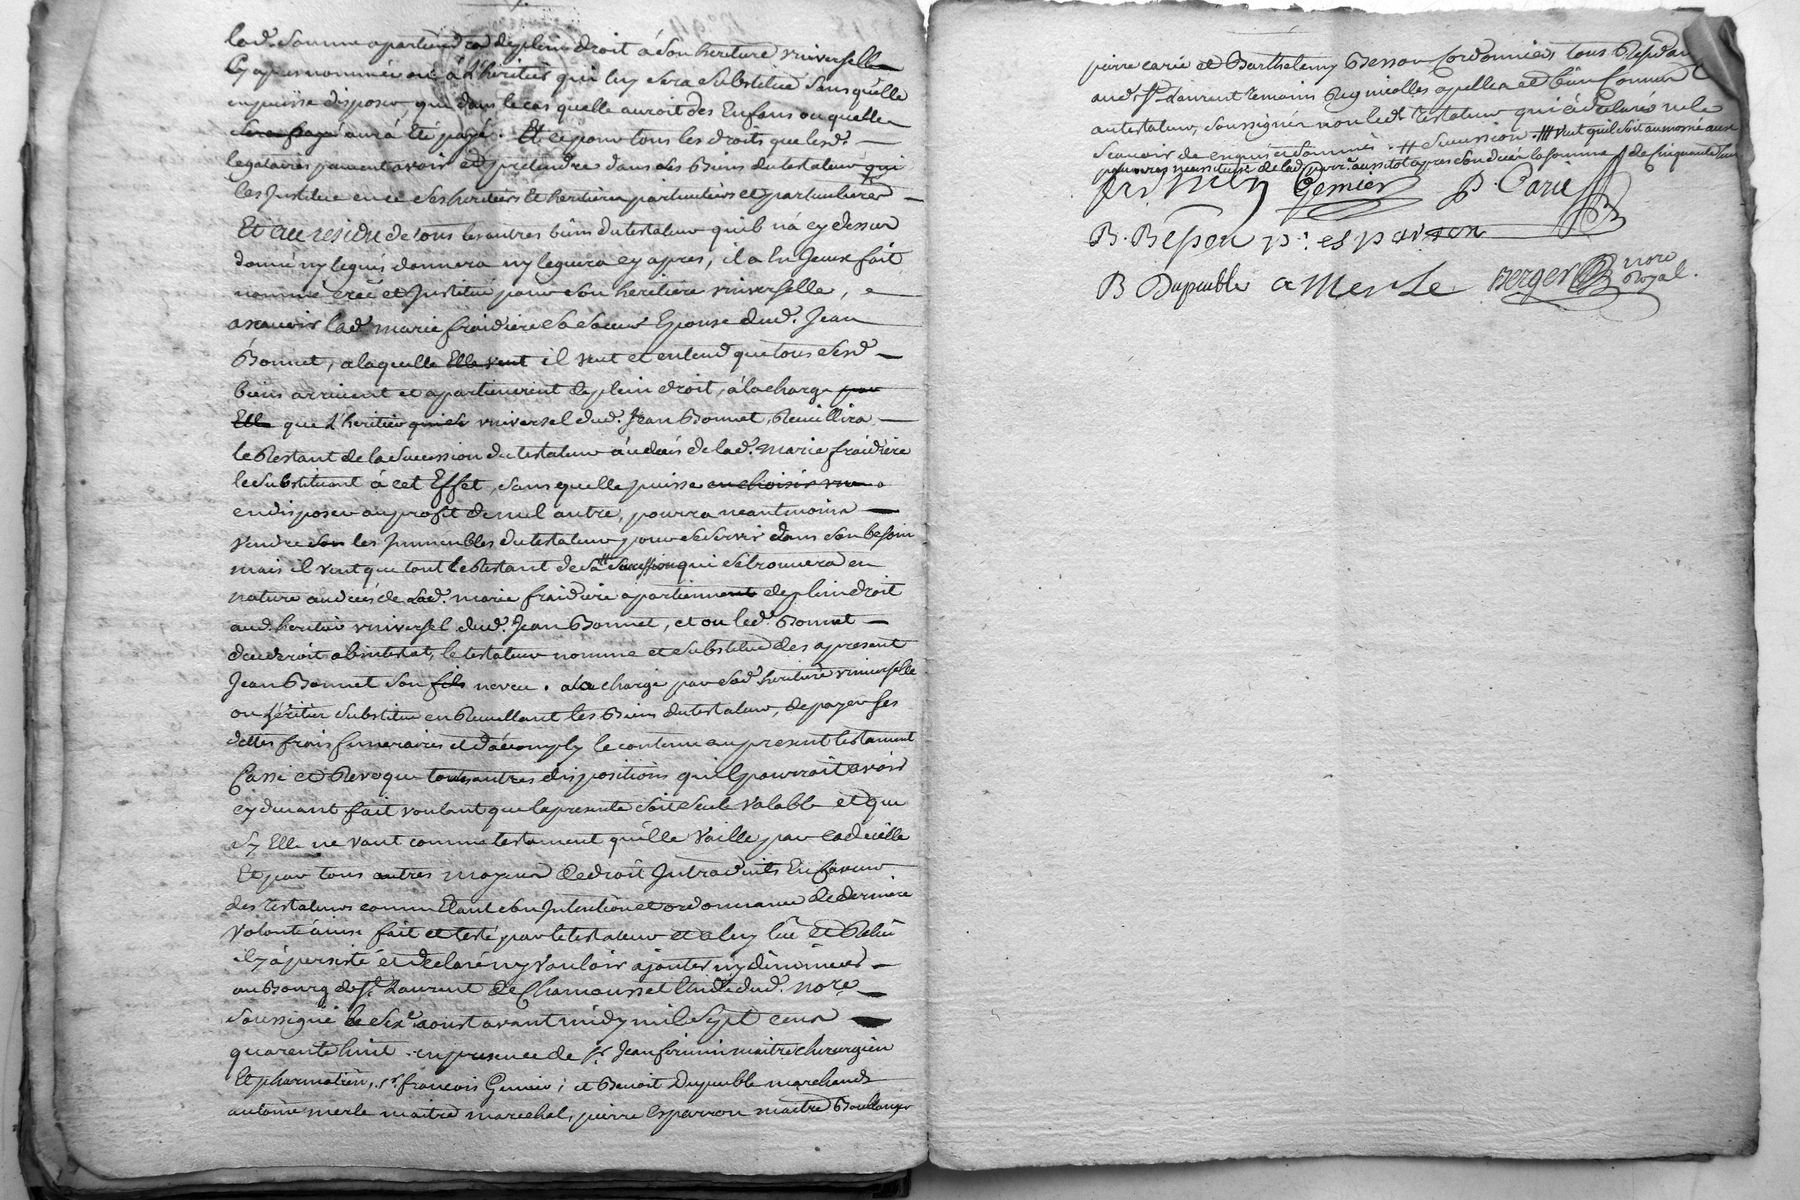 lad. somme apartiendra de plein droit á son heritiere vniverselle
Cy apres nommée ou á L'heritier qui luy sera substitué sans qu'elle
en puisse disposer que dans le cas quelle auroit des Enfans ou quelle
sera payé aura été payé. Et ce pour tous les droits que lesd.
legataires peuvent avoir et pretendre dans ses Biens du testateur qui
les Institue en ce ses heritiers et heritieres particuliers et particulieres
Et au residu de tous les autres biens du testateur quil n'a cy dessus
donné ny legués donnera ny leguera cy apres, il a En Iceux fait
nommé creé et Institué pour son heritiere vniverselle,
a scavoir lad. marie fraidiere sa soeur Epouse dud. Jean
Bonnet, a laquelle Elle veut il veut et entend que tous sesd
biens arrivent et apartiennent de plein droit, á la charge par
Elle que L'heritier vniversel dud. Jean Bonnet, Recuillira
le Restant de la succession du testateur au decés de lad. marie fraidiere
le substituant á cet Effet, sans quelle puisse en choisir vn
en disposer au profit de nul autre, pourra neantmoins
vendre son les Immeubles du testateur pour se servir dans son besoin
mais il veut que tout le Restant de sa # succession qui se trouvera en
nature au decés de Lad. marie fraidiere apartiennent de plein droit
aud. heritier vniversel dud. Jean Bonnet, et ou led. Bonnet
decederoit abintestat, le testateur nomme et substitue des apresent
Jean Bonnet son fils neveu. a la charge par sad. heritiere vniverselle
ou héritier substitué en Recuillant les Biens du testateur, de payer ses
dettes frais funeraires et d'acomply le contenu au present testament
Casse et Revoque tous autres dispositions quil pourroit avoir
cy devant fait voulant que la presente soit seule valable et que
sy Elle ne vaut comme testament qu'elle vaille par codicille
Et par tous autres moyens de droit Introduits En faveur
des testateurs comme Etant son Intention et ordonnance de derniere
volonté ainsi fait et testé par le testateur et a luy lû et Relû
il y á persisté et declaré ny vouloir ajouter ny diminuer
au Bourg de St. Laurent de Chamousset Etude dud. nore
soussigné le sixe. aoust avant midy mil sept cens
quarente huit. en presence de sr. Jean firmin maitre chirurgien
Et pharmatien, sr. francois Genier; et Benoit Dupeuble marchands
antoine merle maitre marechal, pierre Esparron maitre Boullanger
pierre carie et Barthelemy Besson Cordonniers tous Residans
aud. St. Laurent temoins Requis et apellés et bien connus
au testateur, soussignés non led. testateur qui á declaré ne le
scavoir de ce enquis et sommé. # succession. ## veut quil soit aumoné aux
pauvres de lad. parr. aussitot apres son decés la somme de cinquante
firmin Genier P. Carie
B. Besson p. esparron
B Dupeuble a Merle Berger nore
Royal.